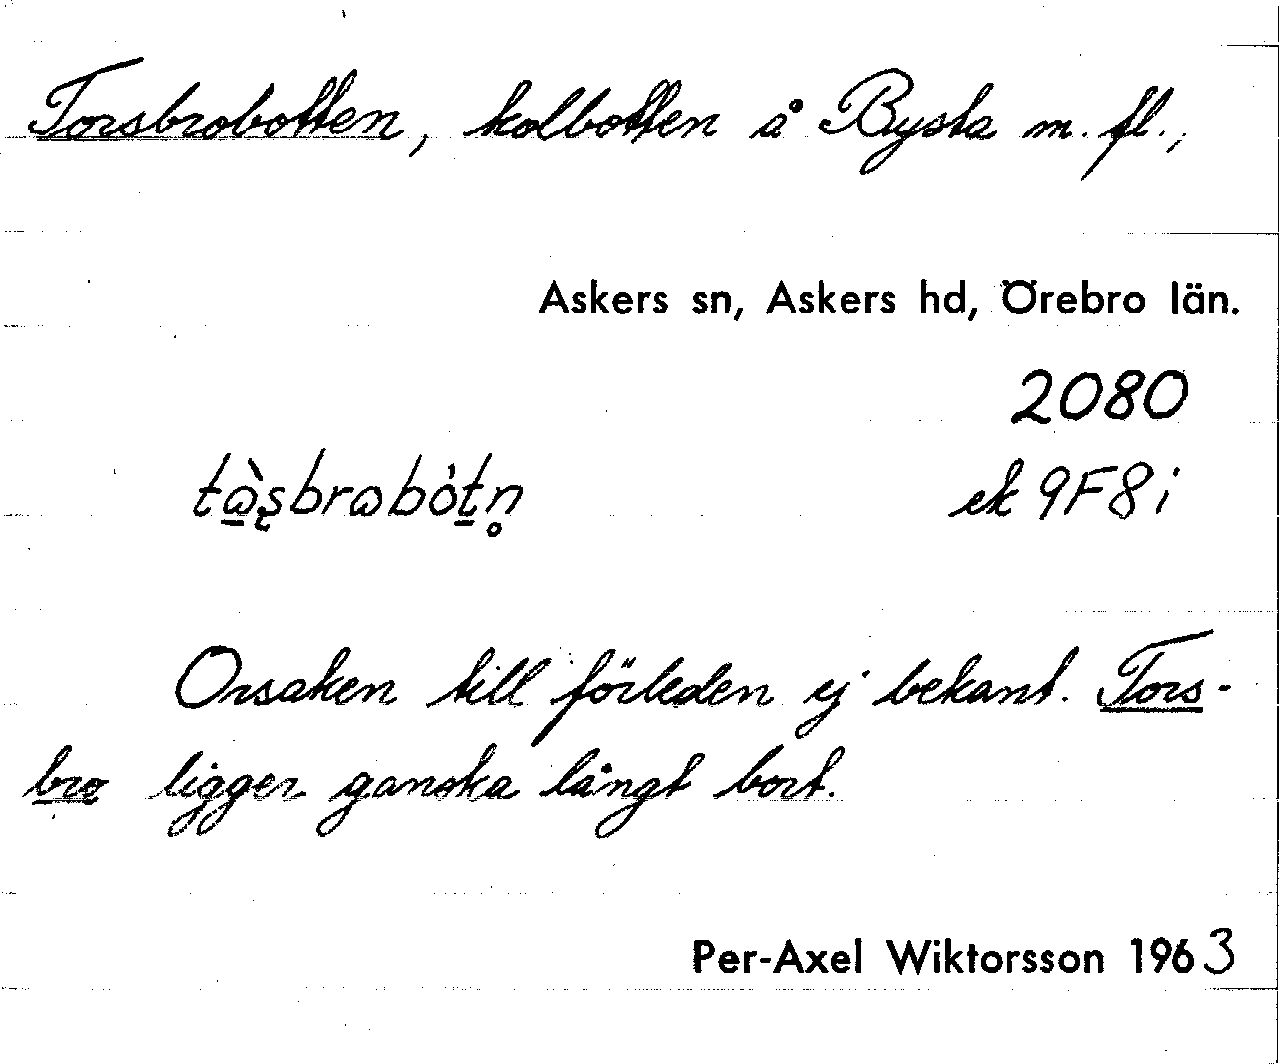 Torsbrobotten, kolbotten å Bysta m. fl.,
Askers sn, Askers hd, Örebro län.
2080
tɷ̠̀ʂbrɷbòt̠n̥ ek 9F8i
Orsaken till förleden ej bekant. Tors-
bro ligger ganska långt bort.
Per-Axel Wiktorsson 1963